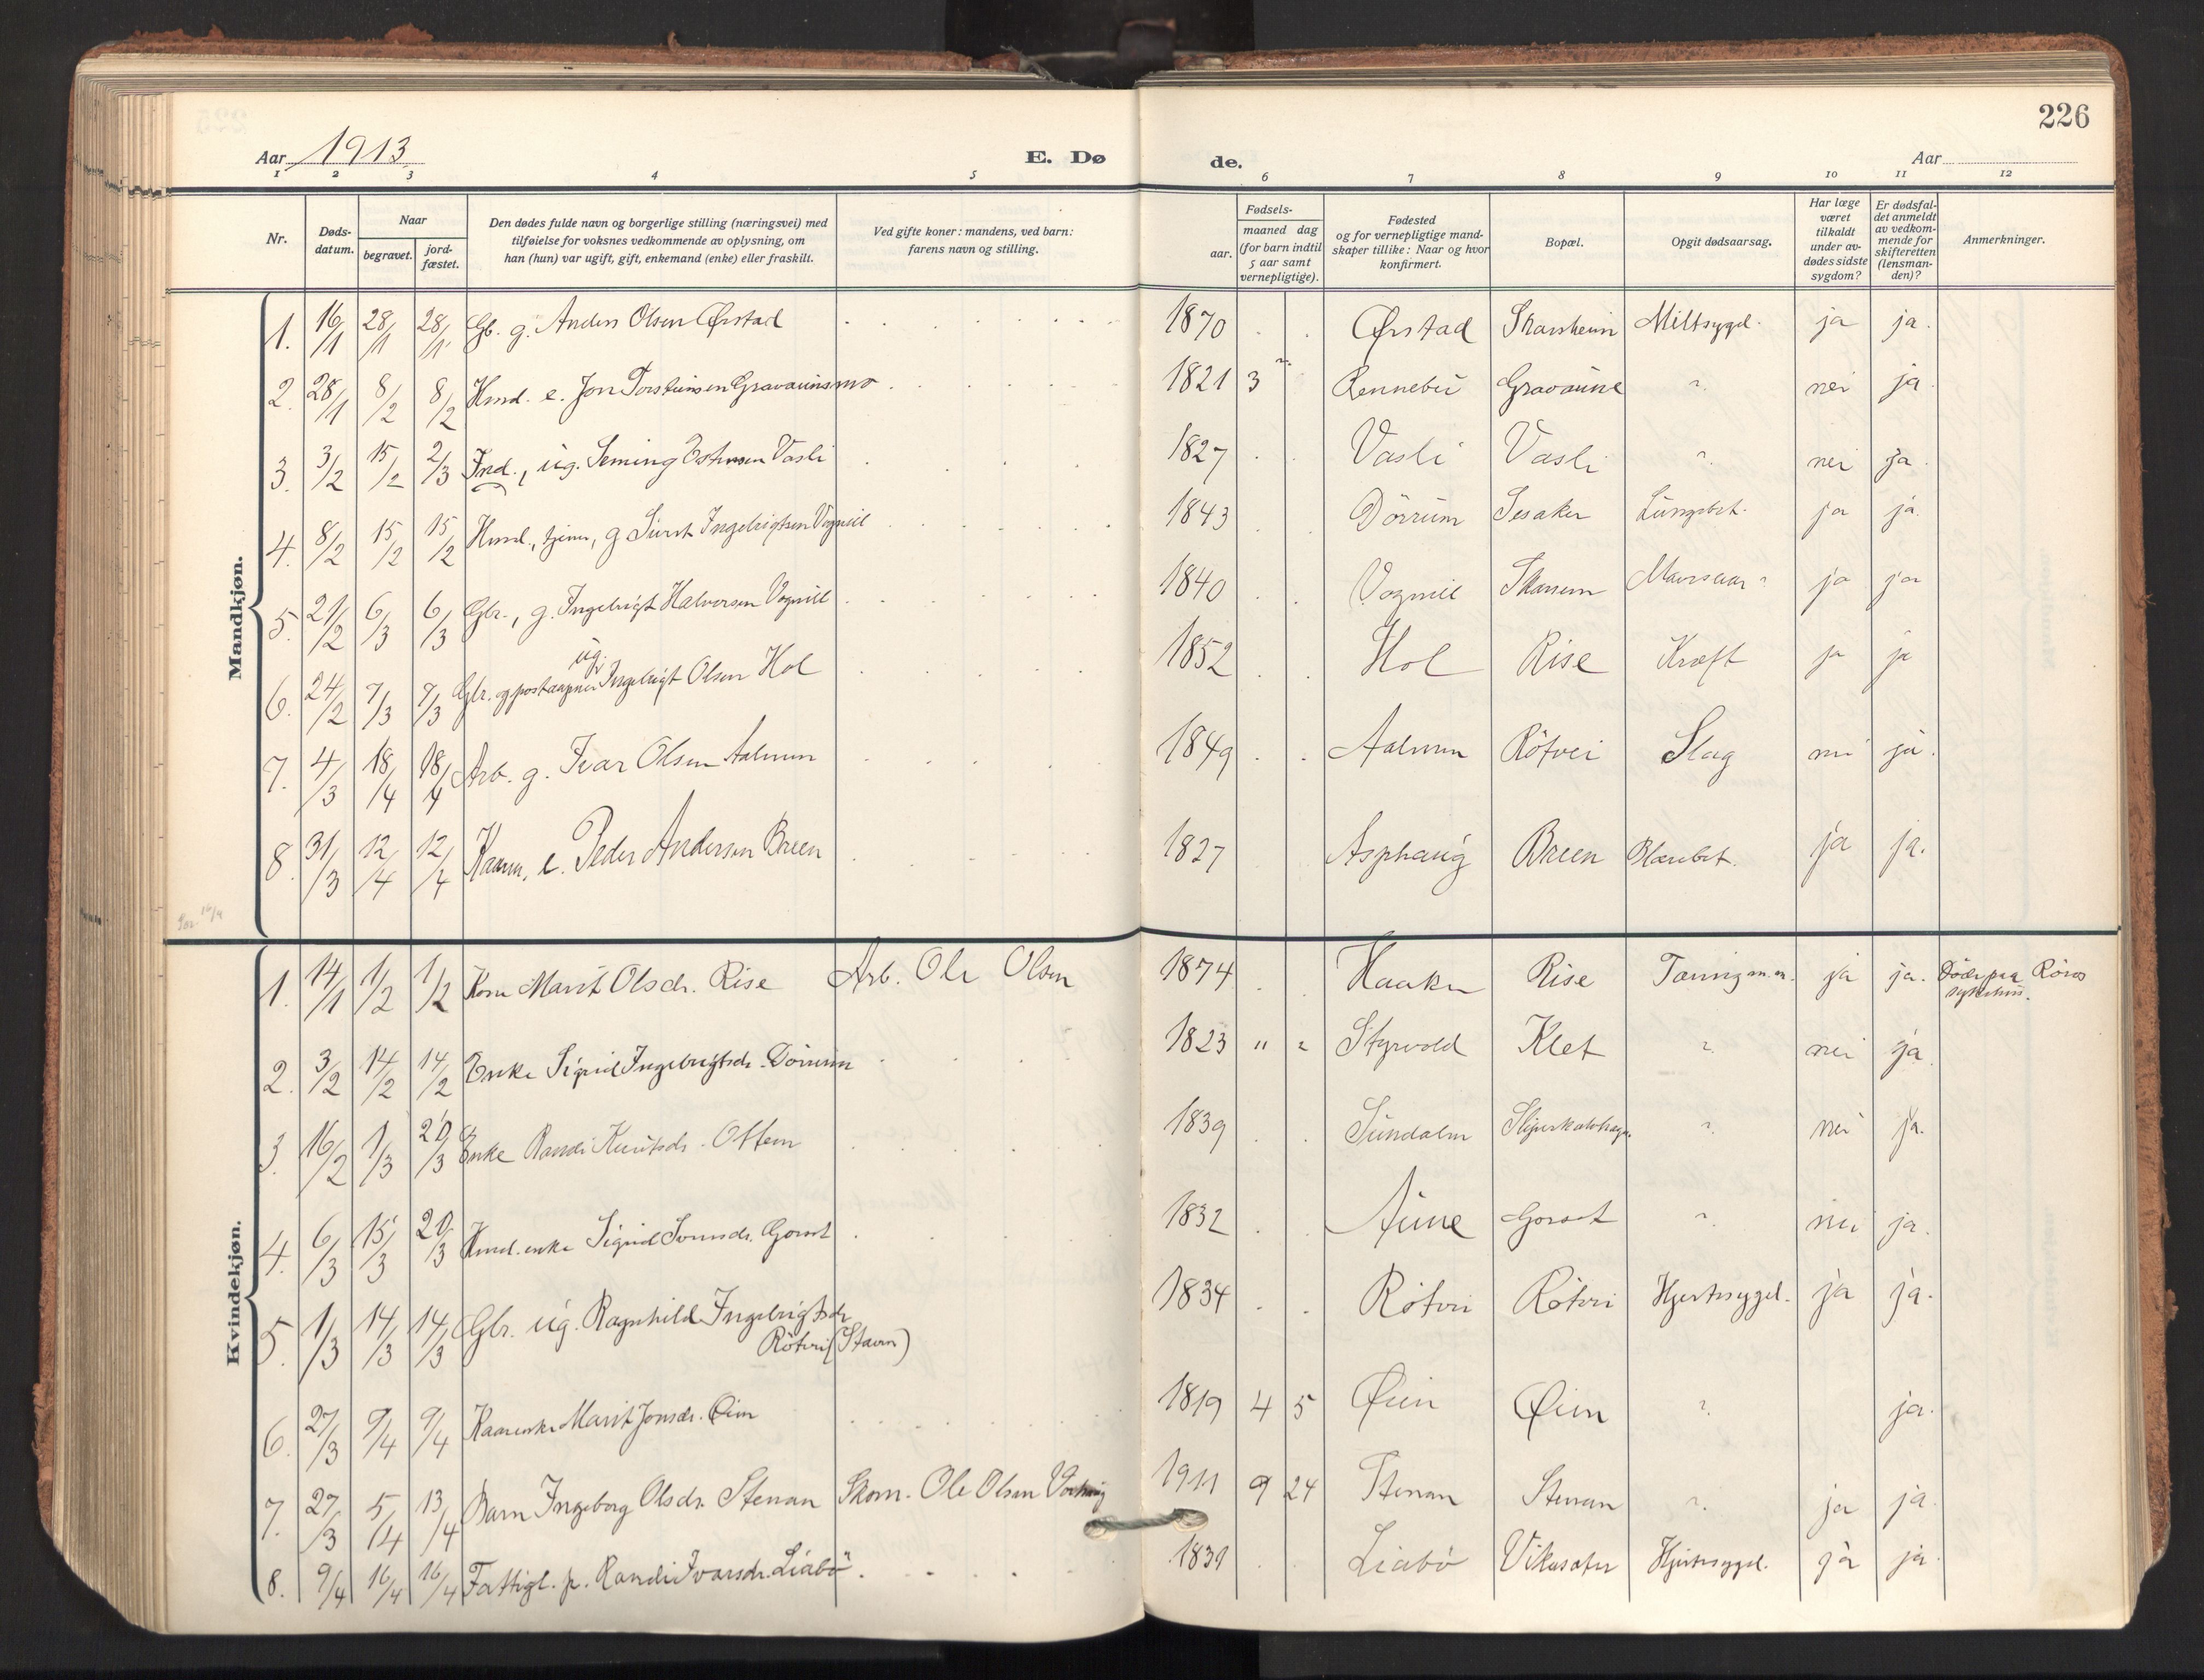 226
Aar 1913
E. Dø
de.
Aar
1 2 3 4 5 6 7 8 9 10 11 12
Nr.
Døds-
datum.
Naar
begravet.
jord-
fæstet.
Den dødes fulde navn og borgerlige stilling (næringsvei) med
tilføielse for voksnes vedkommende av oplysning, om
han (hun) var ugift, gift, enkemand (enke) eller fraskilt.
Ved gifte koner: mandens, ved barn:
farens navn og stilling.
Fødsels-
aar.
maaned dag
(for barn indtil
5 aar samt
vernepligtige).
Fødested
og for vernepligtige mand-
skaper tillike: Naar og hvor
konfirmert.
Bopæl.
Opgit dødsaarsag.
Har læge
været
tilkaldt
under av-
dødes sidste
sygdom?
Er dødsfal-
det anmeldt
av vedkom-
mende for
skifteretten
(lensman-
den)?
Anmerkninger.
Mandkjøn.
1. 16/1 28/1 28/1 Gb. g. Anders Olsen Ørstad 1870 Ørstad Skarsheim Miltsygd. ja ja.
2. 28/1 8/2 8/2 Hmd. e. Jon Torsteinsen Gravaunsmo 1821 3 Rennebu Gravaune ? nei ja.
3. 3/2 15/2 2/3 Ind., ug. Seming Estensen Vasli 1827 Vasli Vasli ? nei ja.
4. 8/2 15/2 15/2 Hmd., tjener, g Sivert Ingebrigtsen Vognill 1843 Dörrum Sesaker Lungebet. ja ja.
5. 21/2 6/3 6/3 Gbr., g. Ingebrigt Halvorsen Vognill 1840 Vognill Skarsem Mavesaar? ja ja
ug.
6. 24/2 7/3 7/3 Gbr. og postaapner Ingebrigt Olsen Hol 1852 Hol Rise Kræft ja ja
7. 4/3 18/4 18/4 Arb. g. Ivar Olsen Aalmen 1849 Aalmen Rötvei Slag nei ja.
8. 31/3 12/4 12/4 Kaarm. e. Peder Andersen Breen 1827 Asphaug Breen Blærebet. ja ja.
16/4
Kvindekjøn.
1. 14/1 1/2 1/2 Kone Marit Olsdr. Rise Arb. Ole Olsen 1874 Haaker Rise Tæring m.m. ja ja. Döde paa Röros
sykehus.
2. 3/2 14/2 14/2 Enke Sigrid Ingebrigtsdr. Dörrum 1823 " " Styrvold Klet ? nei ja.
3. 16/2 1/3 20/3 Enke Randi Knutsdr. Ottem 1839 Sundalen ? nei ja.
4. 6/3 15/3 20/3 Hmd. enke Sigrid Gorset 1832 Aune Gorset ? nei ja.
5. 1/3 14/3 14/3 Gbr. ug. Ragnhild Ingebrigtsdr
Rötvei (Stavn) 1834 Rötvei Rötvei Hjertesygd. ja ja.
6. 27/3 9/4 9/4 Kaarenke Marit Jonsdr. Øien 1819 4 5 Øien Øien ? ja.
7. 27/3 5/4 13/4 Barn Ingeborg Olsdr. Stenan Skom. Ole Olsen 1911 9 24 Stenan Stenan ? ja ja.
8. 9/4 16/4 16/4 Fattigl. p. Randi Ivarsdr. Liabö. 1839 Liabö Vikasæter Hjertesygd. ja ja.